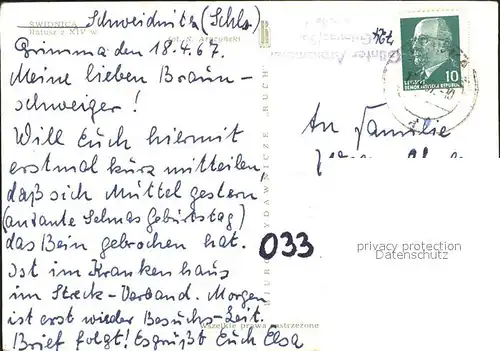 ŚWIDNICA
Ratusz z XIV w
Schweidnitz (Schls.)
fot. S. Arczyński
Grimma den 18.4.67.
Meine lieben Braun-
schweiger!
Will Euch hiermit
erstmal kurz mitteilen,
daß sich Muttel gestern
(an Tante Selmas Geburtstag)
das Bein gebrochen hat.
Ist im Krankenhaus
im Streck-Verband. Morgen
ist erst wieder Besuchs-Zeit.
Brief folgt! Es grüßt Euch Elsa
BIURO WYDAWNICZE „RUCH”
Wszelkie prawa zastrzeżone
DEUTSCHE
DEMOKRATISCHE REPUBLIK
10
An Familie
033
privacy protection
Datenschutz